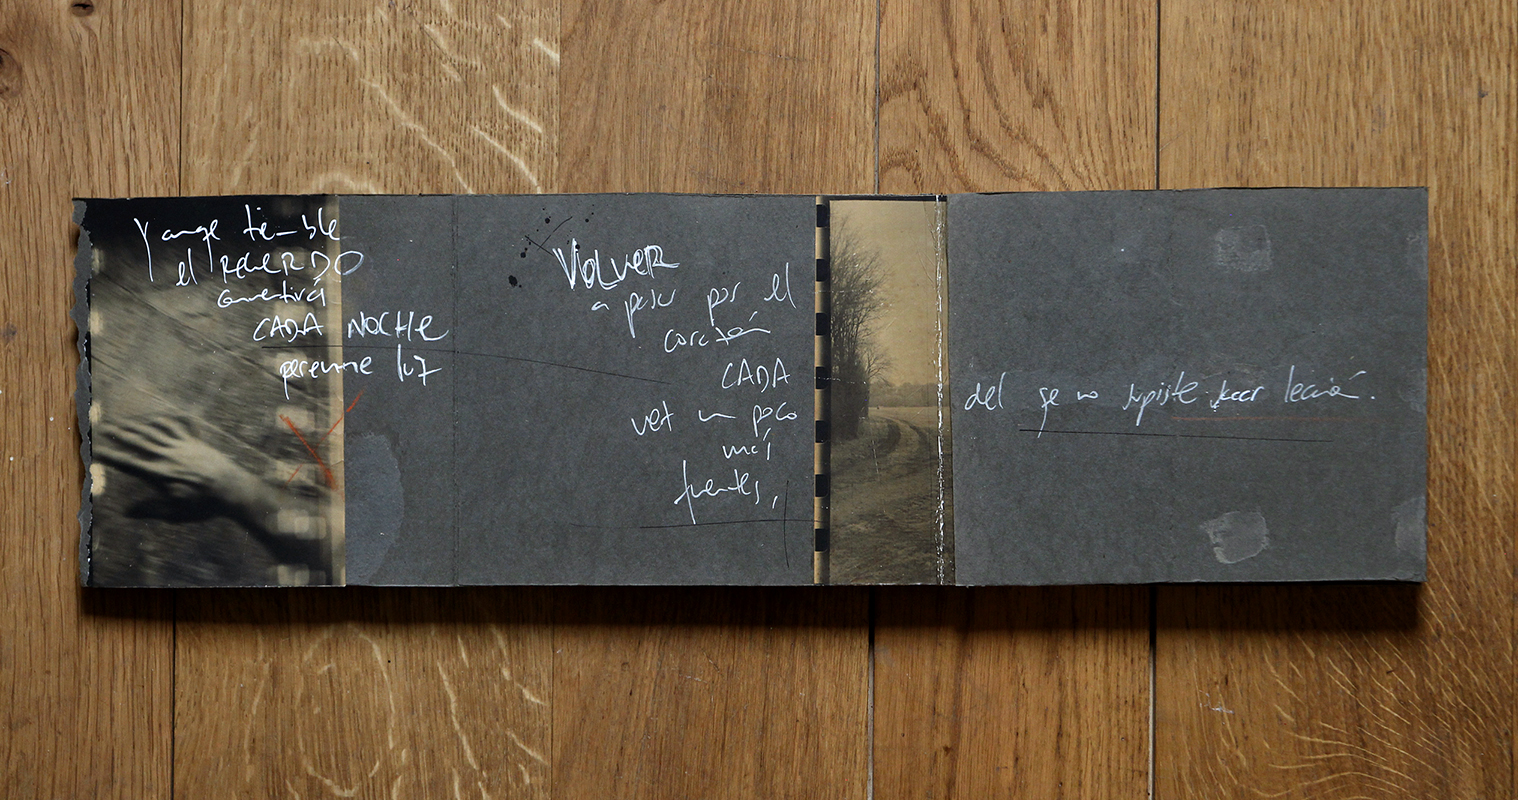 Y aunque tiemble
el RECUERDO
convertirá
CADA NOCHE
perenne luz
VOLVER
a pasar por el
corazón
CADA
vez un poco
más
fuertes,
del que no supiste sacar lección.